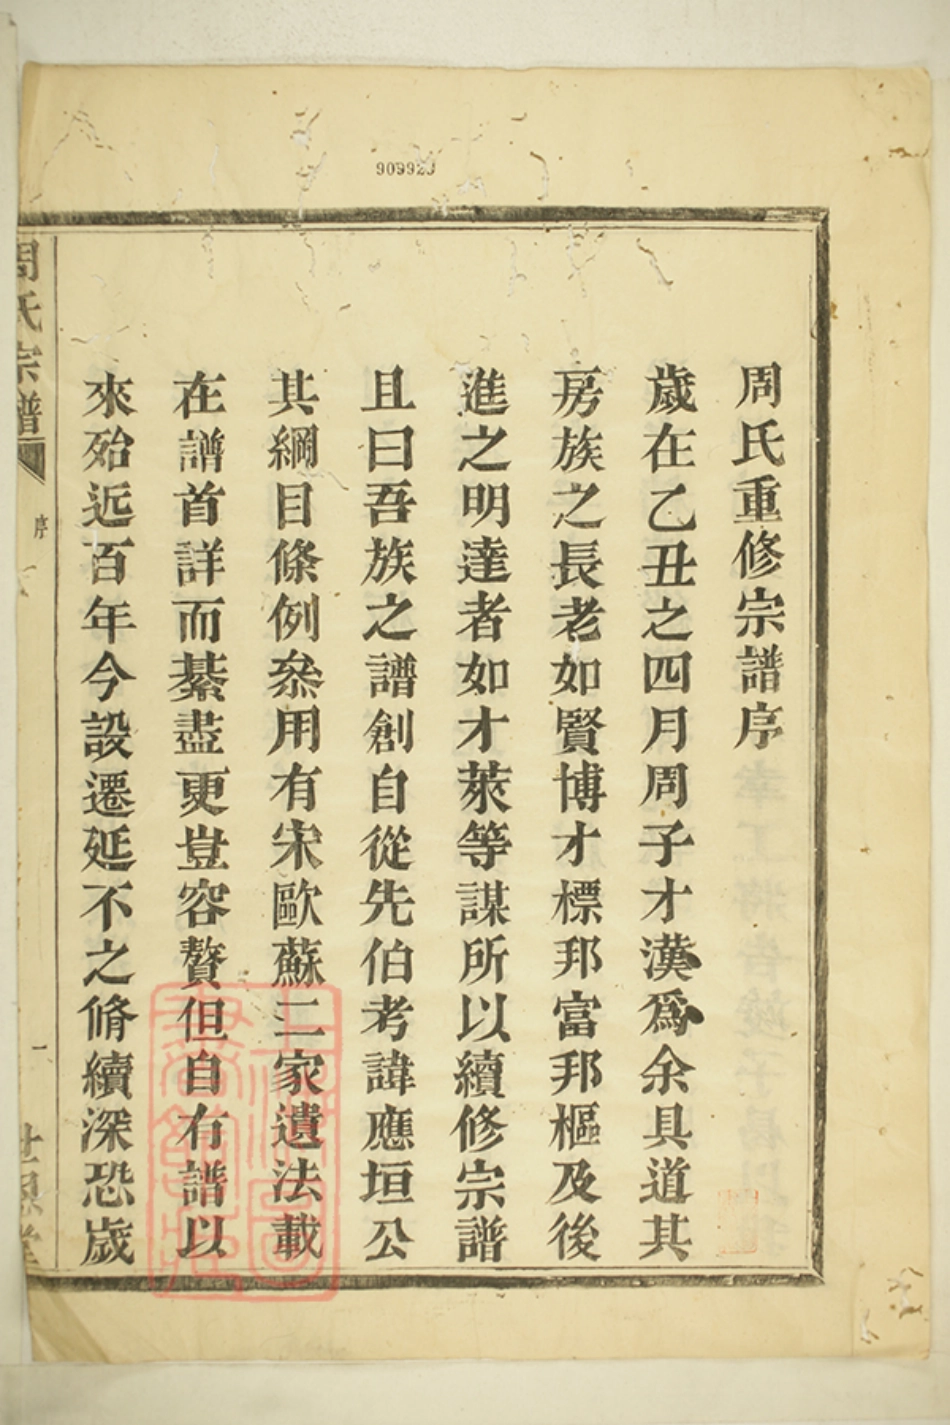 909929
周氏重修宗譜序
歲在乙丑之四月周子才漢爲余具道其
房族之長老如賢博才標邦富邦樞及後
進之明達者如才萊等謀所以續修宗譜
且曰吾族之譜創自從先伯考諱應垣公
其綱目條例叅用有宋歐蘇二家遺法載
在譜首詳而綦盡更豈容贅但自有譜以
來殆近百年今設遷延不之脩續深恐歲
周氏宗譜
序
一
世恩堂
上海圖書館藏